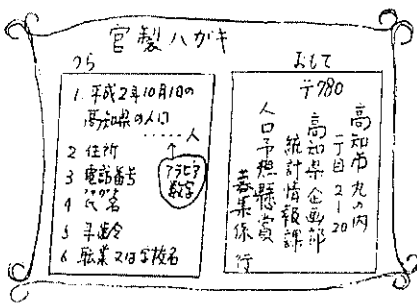 官製ハガキ
うら
1. 平成2年10月1日の
高知県の人口
……人
↑
アラビア
数字
2 住所
3 電話番号
フリガナ
4 氏名
5 年令
6 職業又は学校名
おもて
〒780
高知市丸の内
一丁目2-20
高知県企画部
統計情報課
人口予想懸賞
募集係 行